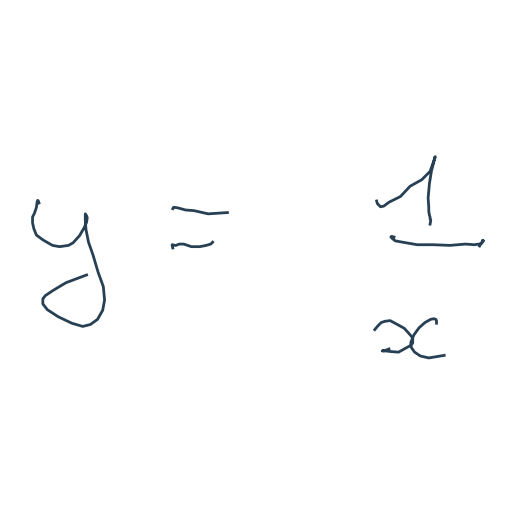 y = 1/x